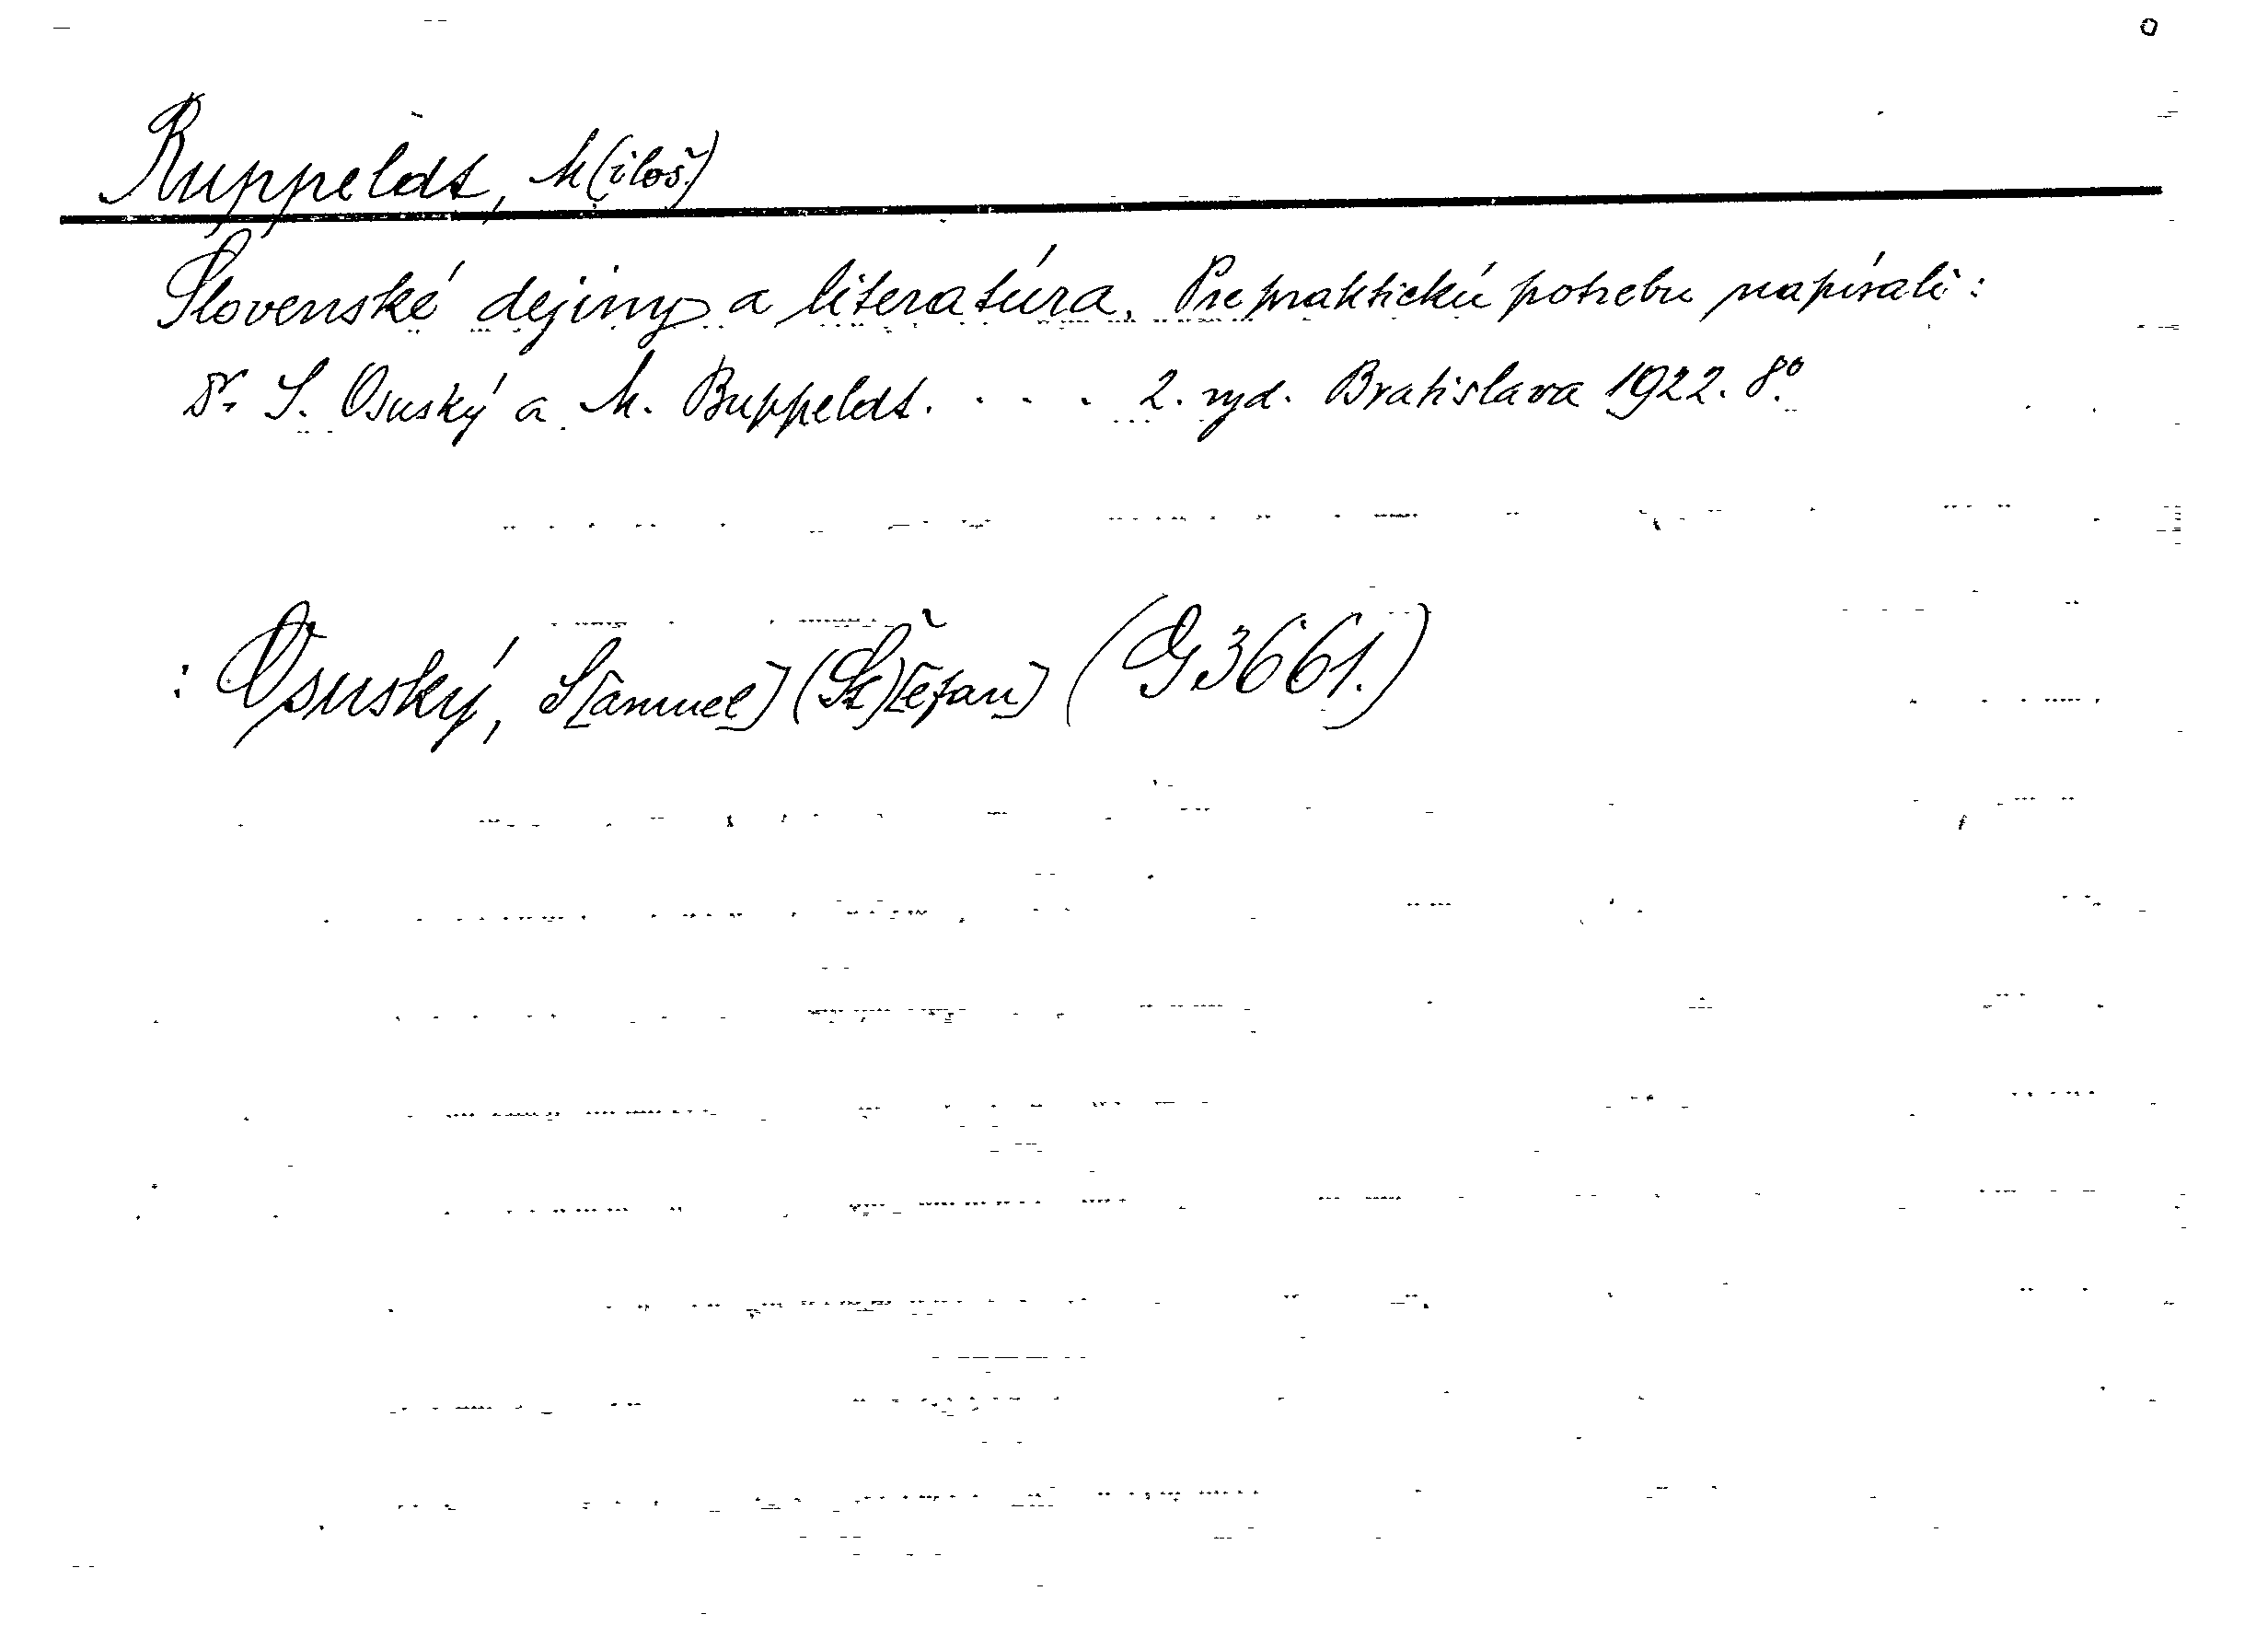 Ruppeldt, M(iloš.)
Slovenské dejiny a literatúra. Pre praktickú potrebu napísali:
Dr. S. Osuský a M. Ruppeldt. . . . 2. vyd. Bratislava 1922. 8º.
: Osuský, S[amuel] (Št)[efan] (G 3661.)